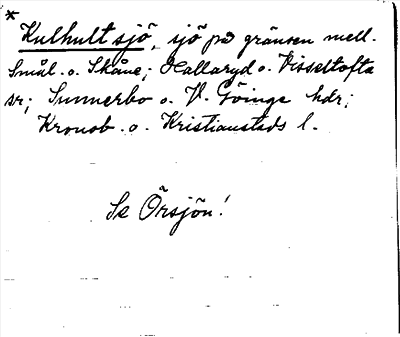 *
Kulhult sjö, sjö på gränsen mell.
Smål. o. Skåne; Hallaryd o. Visseltofta
sr; Sunnerbo o. V. Göinge hdr;
Kronob. o. Kristianstads l.
Se Örsjön!